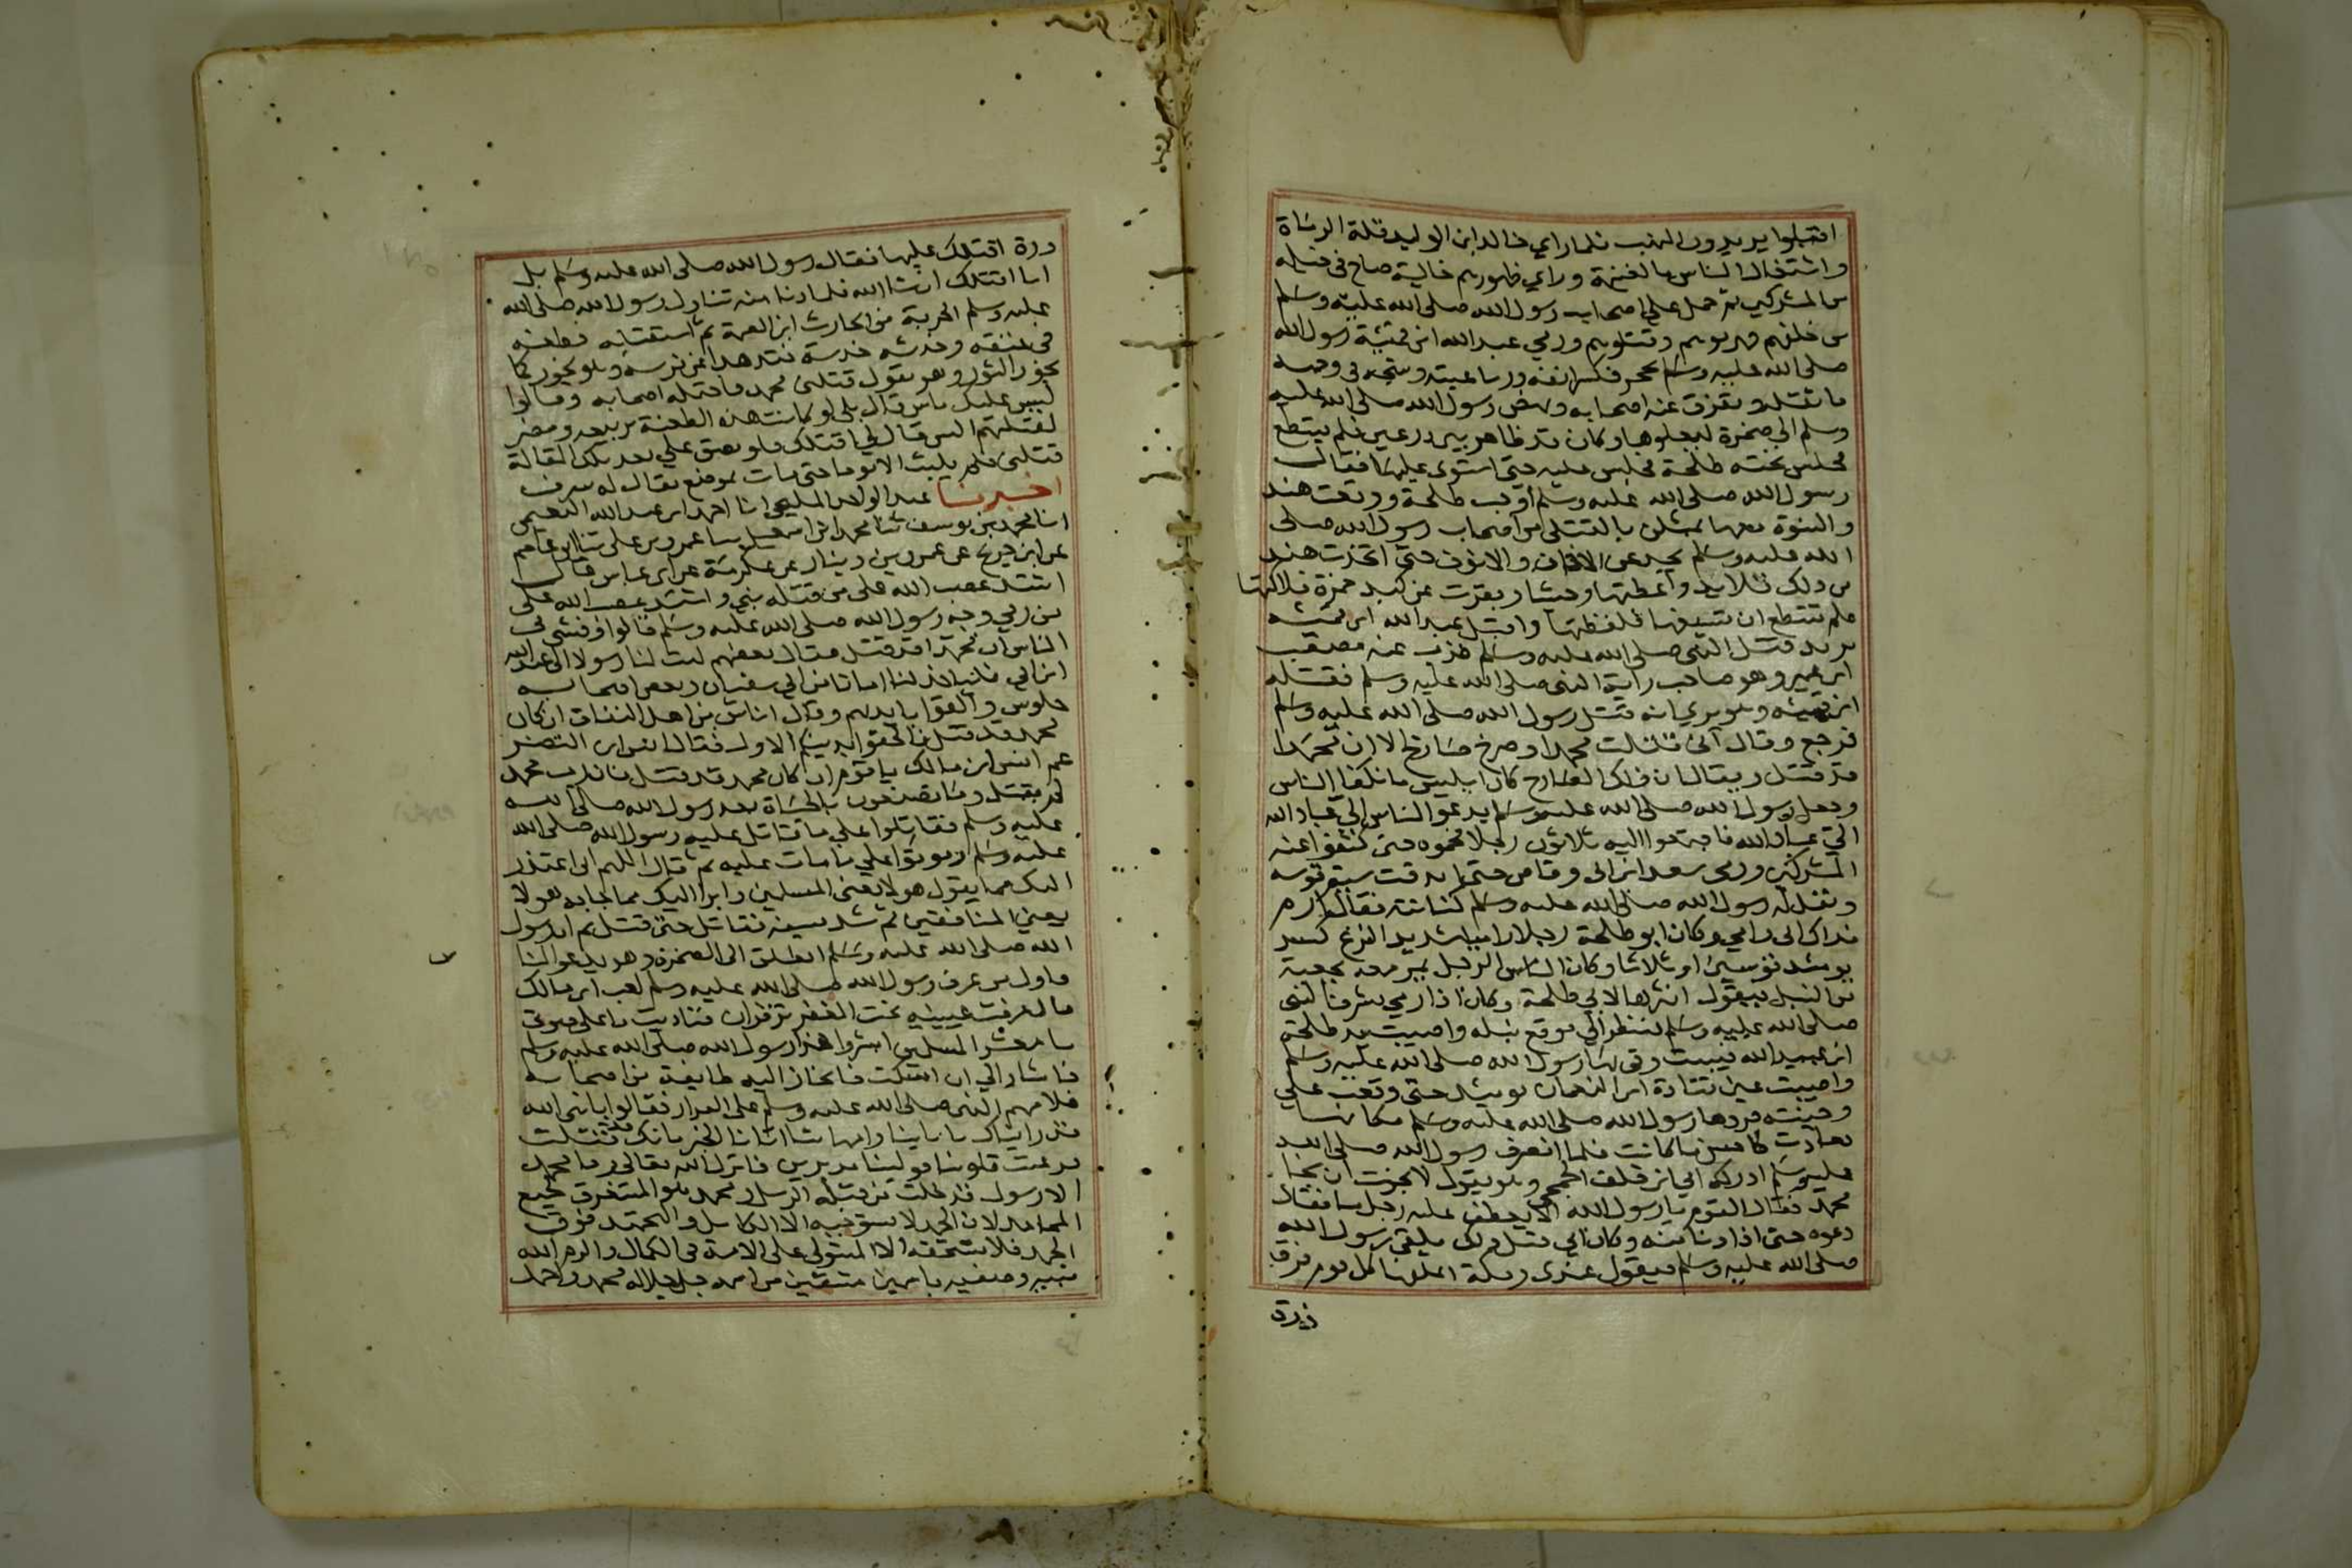 اقبلوا يريدون النهب فلما راي خالد ابن الوليد قلة الرماة
واشتغال الناس بالغنيمة وراي ظهورهم خالية صاح في خيله
من المشركين ثم حمل علي اصحاب رسول الله صلى الله عليه وسلم
من خلفهم فهزموهم وقتلوهم ورمي عبد الله ابن قميئة رسول الله
صلى الله عليه وسلم بحجر فكسر انفه ورباعيته وشجه في وجهه
فاثقله وتفرق عنه اصحابه ونهض رسول الله صلى الله عليه
وسلم الي صخرة ليعلوها وكان قد ظاهر بين درعين فلم يستطع
فجلس تحته طلحة فجلس عليه حتى استوى عليها فقال
رسول الله صلى الله عليه وسلم اوجب طلحة ووقعت هند
والنسوة معها يمثلن بالقتلى من اصحاب رسول الله صلى
الله عليه وسلم يجدعن الاذان والانوف حتى اتخذت هند
من ذلك قلايد واعطتها وحشيا وبقرت عن كبد حمزة فلاكتها
فلم تستطع ان تسيغها فلفظتها واقبل عبد الله ابن قميئه
يريد قتل النبي صلى الله عليه وسلم فذب عنه مصعب
ابن عمير وهو صاحب راية النبي صلى الله عليه وسلم فقتله
ابن قميئه وهو يري انه قتل رسول الله صلى الله عليه وسلم
فرجع وقال اني قتلت محمدا وصرخ صارخ الا ان محمدا
قد قتل ويقال ان ذلك الصارخ كان ابليس فانكفا الناس
وجعل رسول الله صلى الله عليه وسلم يدعو الناس الي عباد الله
الي عباد الله فاجتمعوا اليه ثلاثون رجلا فحموه حتى كشفوا عنه
المشركين ورمى سعد ابن ابي وقاص حتى اندقت سية قوسه
ونثل له رسول الله صلى الله عليه وسلم كنانته فقال له ارم
فداك ابي وامي وكان ابو طلحة رجلا راميا شديد النزع كسر
يومئذ قوسين او ثلاثا وكان الناس الرجل يمر معه بجعبة
من النبل فيقول انثرها لابي طلحة وكان اذا رمي يشرف النبي
صلى الله عليه وسلم لينظر الي موقع نبله واصيبت يد طلحة
ابن عبيد الله فيبست وقى بها رسول الله صلى الله عليه وسلم
واصيبت عين قتادة ابن النعمان يومئذ حتى وقعت علي
وجنته فردها رسول الله صلى الله عليه وسلم مكانها
فعادت كاحسن ما كانت فلما انصرف رسول الله صلى الله
عليه وسلم ادركه ابي ابن خلف الجمحي وهو يقول لا نجوت ان نجا
محمد فقال القوم يا رسول الله الا يعطف عليه رجل منا فقال
دعوه حتى اذا دنا منه وكان ابي قبل ذلك يلقي رسول الله
صلى الله عليه وسلم فيقول عندي رمكة اعلفها كل يوم فرق
ذرة
درة اقتلك عليها فقال رسول الله صلى الله عليه وسلم بل
انا اقتلك ان شا الله فلما دنا منه تناول رسول الله صلى الله
عليه وسلم الحربة من الحارث ابن الصمة ثم استقبله فطعنه
في عنقه وخدشه خدشة فتدهدا عن فرسه وهو يخور كما
يخور الثور وهو يقول قتلني محمد فاحتمله اصحابه وقالوا
ليس عليك باس قال بلى لو كانت هذه الطعنة بربيعه ومضر
لقتلتهم اليس قال لي اقتلك فلو بصق علي بعد تلك المقالة
قتلني فلم يلبث الا يوما حتى مات بموضع يقال له سرف
اخبرنا عبد الواحد المليحي انا احمد ابن عبد الله النعيمي
انا محمد بن يوسف ثنا محمد ابن اسمعيل ثنا عمرو بن على ثنا ابو عاصم
عن ابن جريج عن عمرو بن دينار عن عكرمة عن ابن عباس قال
اشتد غضب الله على من قتله نبي واشتد غضب الله على
من رمي وجه رسول الله صلى الله عليه وسلم قالوا وفشي في
الناس ان محمدا قد قتل فقال بعضهم ليت لنا رسولا الى عبد الله
ابن ابي فياخذ لنا امانا من ابي سفيان وبعض اصحابه
جلوس والقوا بايديهم وقال اناس من اهل النفاق ان كان
محمد قد قتل فالحقوا بدينكم الاول فقال انس ابن النضر
عم انس ابن مالك يا قوم ان كان محمد قد قتل فان رب محمد
لم يقتل وما تصنعون بالحياة بعد رسول الله صلى الله
عليه وسلم فقاتلوا علي ما قاتل عليه رسول الله صلى الله
عليه وسلم وموتوا علي ما مات عليه ثم قال اللهم اني اعتذر
اليك مما يقول هولا يعني المسلمين وابرا اليك مما جا به هولا
يعني المنافقين ثم شد بسيفه فقاتل حتى قتل ثم ان رسول
الله صلى الله عليه وسلم انطلق الى الصخرة وهو يدعو الناس
فاول من عرف رسول الله صلى الله عليه وسلم كعب ابن مالك
قال عرفت عينيه تحت المغفر تزهران فناديت باعلى صوتي
يا معشر المسلمين ابشروا هذا رسول الله صلى الله عليه وسلم
فاشار الي ان اسكت فانحاز اليه طايفة من اصحابه
فلامهم النبي صلى الله عليه وسلم على الفرار فقالوا يا نبي الله
فديناك بابائنا وامهاتنا اتانا الخبر بانك قد قتلت
فرعبت قلوبنا فولينا مدبرين فانزل الله تعالى وما محمد
الا رسول قد خلت من قبله الرسل ومحمد هو المستغرق لجميع
المحامد لان الحمد لا يستوجبه الا الكامل والتحميد فوق
الحمد فلا يستحقه الا المستولي على الامد في الكمال واكرم الله
نبيه وصفيه باسمين مشتقين من اسمه جل جلاله محمد واحمد